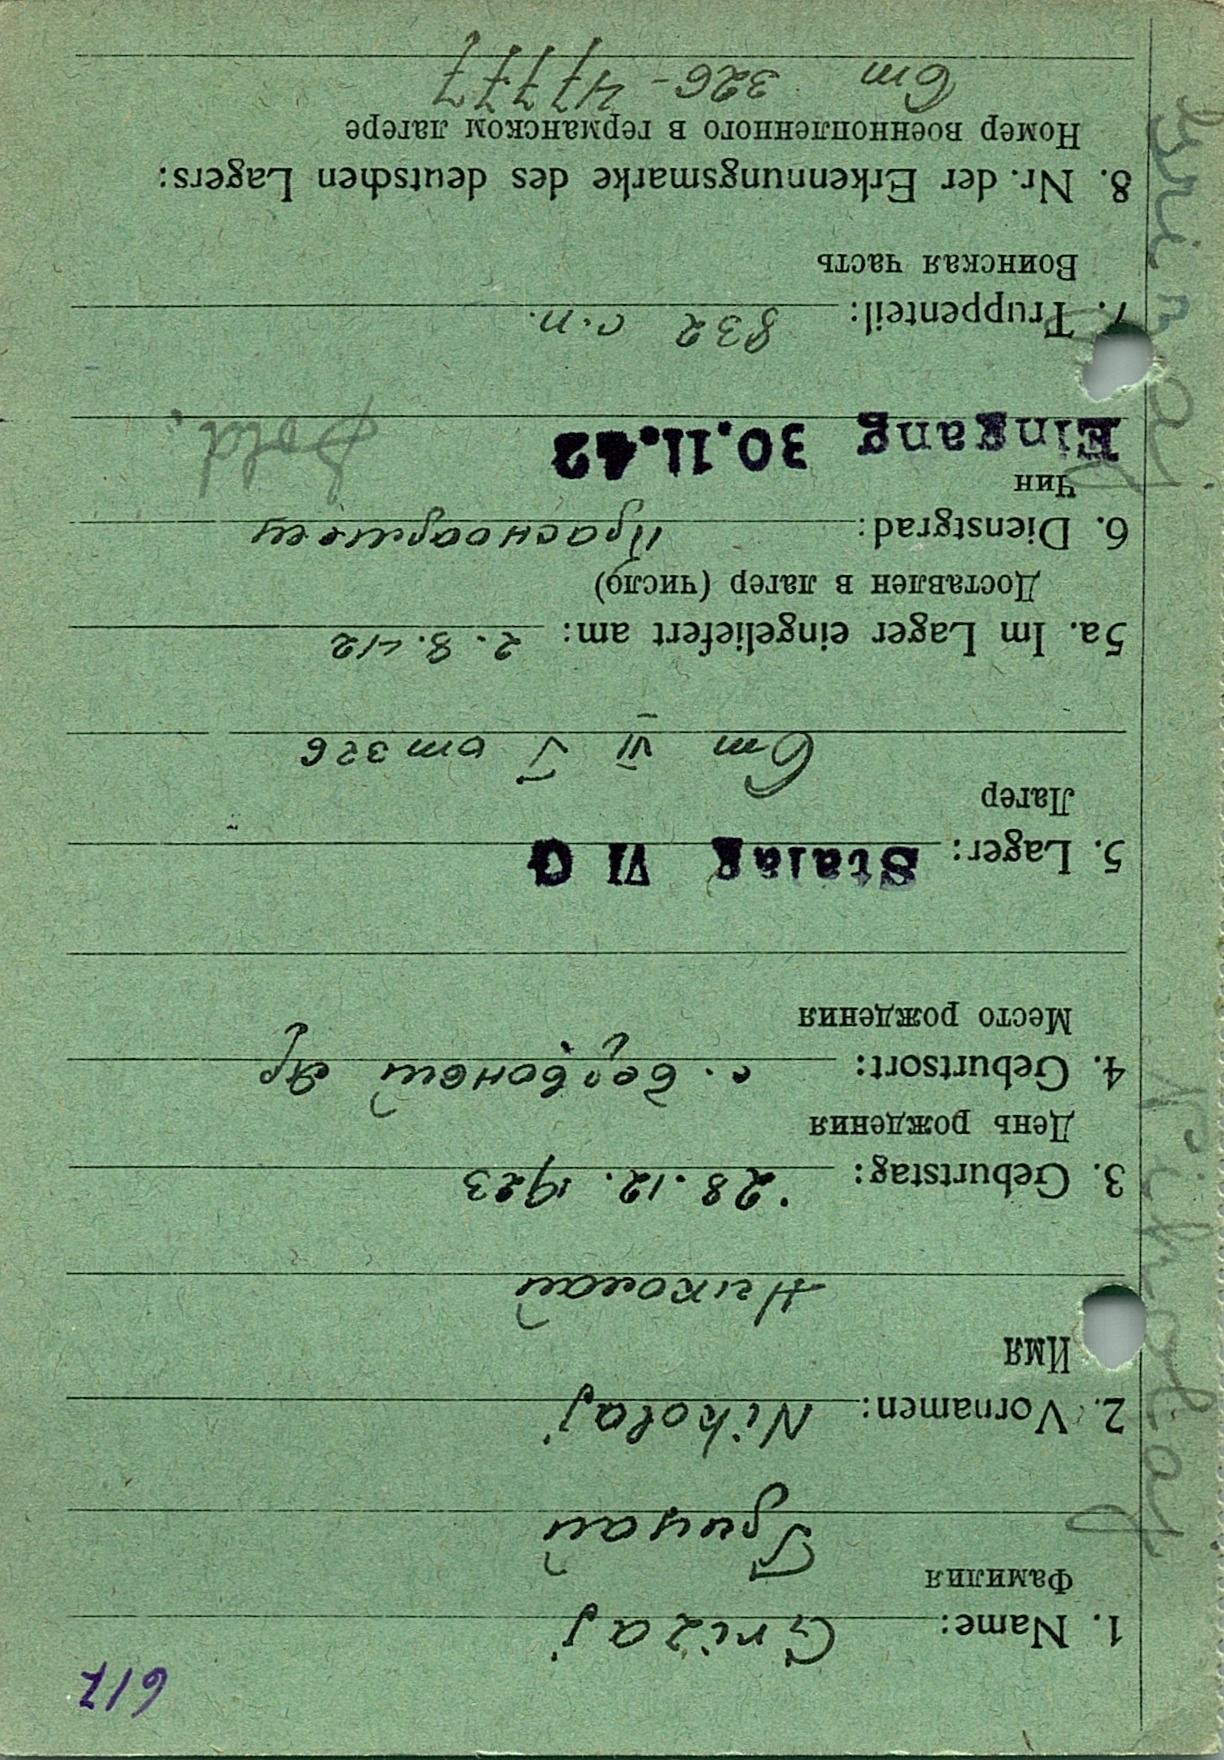 617
1. Name: Grizaj
Фамилия
Грицай
2. Vornamen: Nikolaj
Имя
Николай
3. Geburtstag: 28.12.1923
День рождения
4. Geburtsort: с. Яр
Место рождения
5. Lager: Stalag VI G
Лагер
Ст VI от 326
5a. Im Lager eingeliefert am: 2.8.42
Доставлен в лагер (число)
6. Dienstgrad: Красноармеец
Чин
Eingang 30.11.42
Sold.
7. Truppenteil: 832 с.п.
Воинская часть
8. Nr. der Erkennungsmarke des deutschen Lagers:
Номер военнопленного в германском лагере
Ст 326-47777
Nikolaj